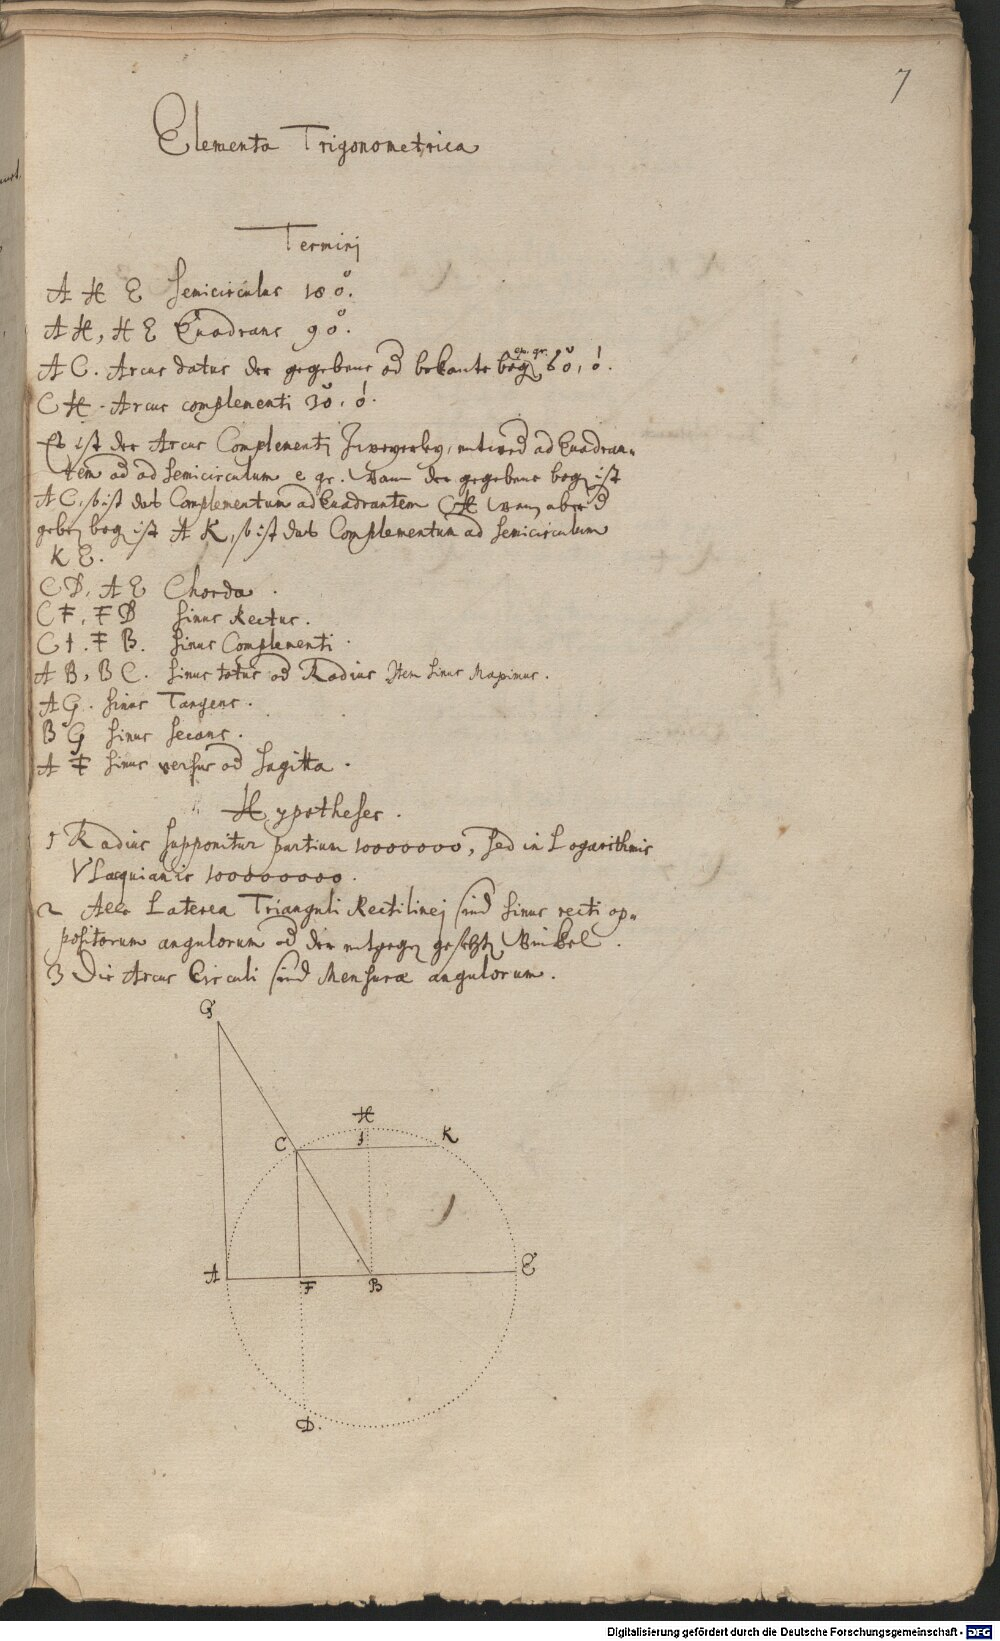 7
Elementa Trigonometrica
Terminj
A H E Semicirculus 180°.
A H, H E Quadrans 90°.
A C. Arcus datus der gegebene od bekante bog ex. gr. 60°, 0'.
C H. Arcus complementi 30°. 0'.
Es ist der Arcus Complementi Zweyerley, entwed ad Quadran-
tem od ad Semicirculum e gr. Wann der gegebene bog ist
A C, so ist das Complementum ad Quadrantem C H wann aber d
geben bog ist A K, so ist das Complementum ad Semicirculum
K E.
C D, A E Chorda.
C F, F D Sinus Rectus.
C I. F B. Sinus Complementi.
A B, B C. Sinus totus od Radius Item Sinus Maximus.
A G. Sinus Tangens.
B G Sinus Secans.
A F Sinus versus od Sagitta.
Hypotheses.
1 Radius supponitur partium 10000000, sed in Logarithmis
Vlacquianis 1000000000.
2 Alle Laterea Trianguli Rectilinej sind Sinus recti op-
positorum angulorum od der entgegen gesetzten Winkel.
3 Die Arcus Circuli sind Mensuræ angulorum.
G
H
C I K
A F B E
D.
Digitalisierung gefördert durch die Deutsche Forschungsgemeinschaft - DFG